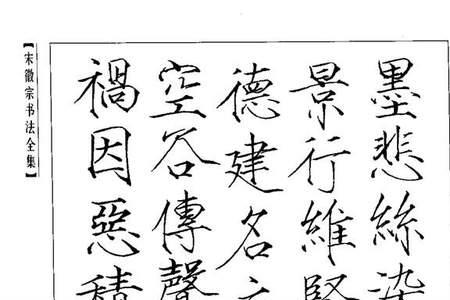 墨悲絲染
景行維賢
德建名立
空谷傳聲
禍因惡積
【宋徽宗书法全集】